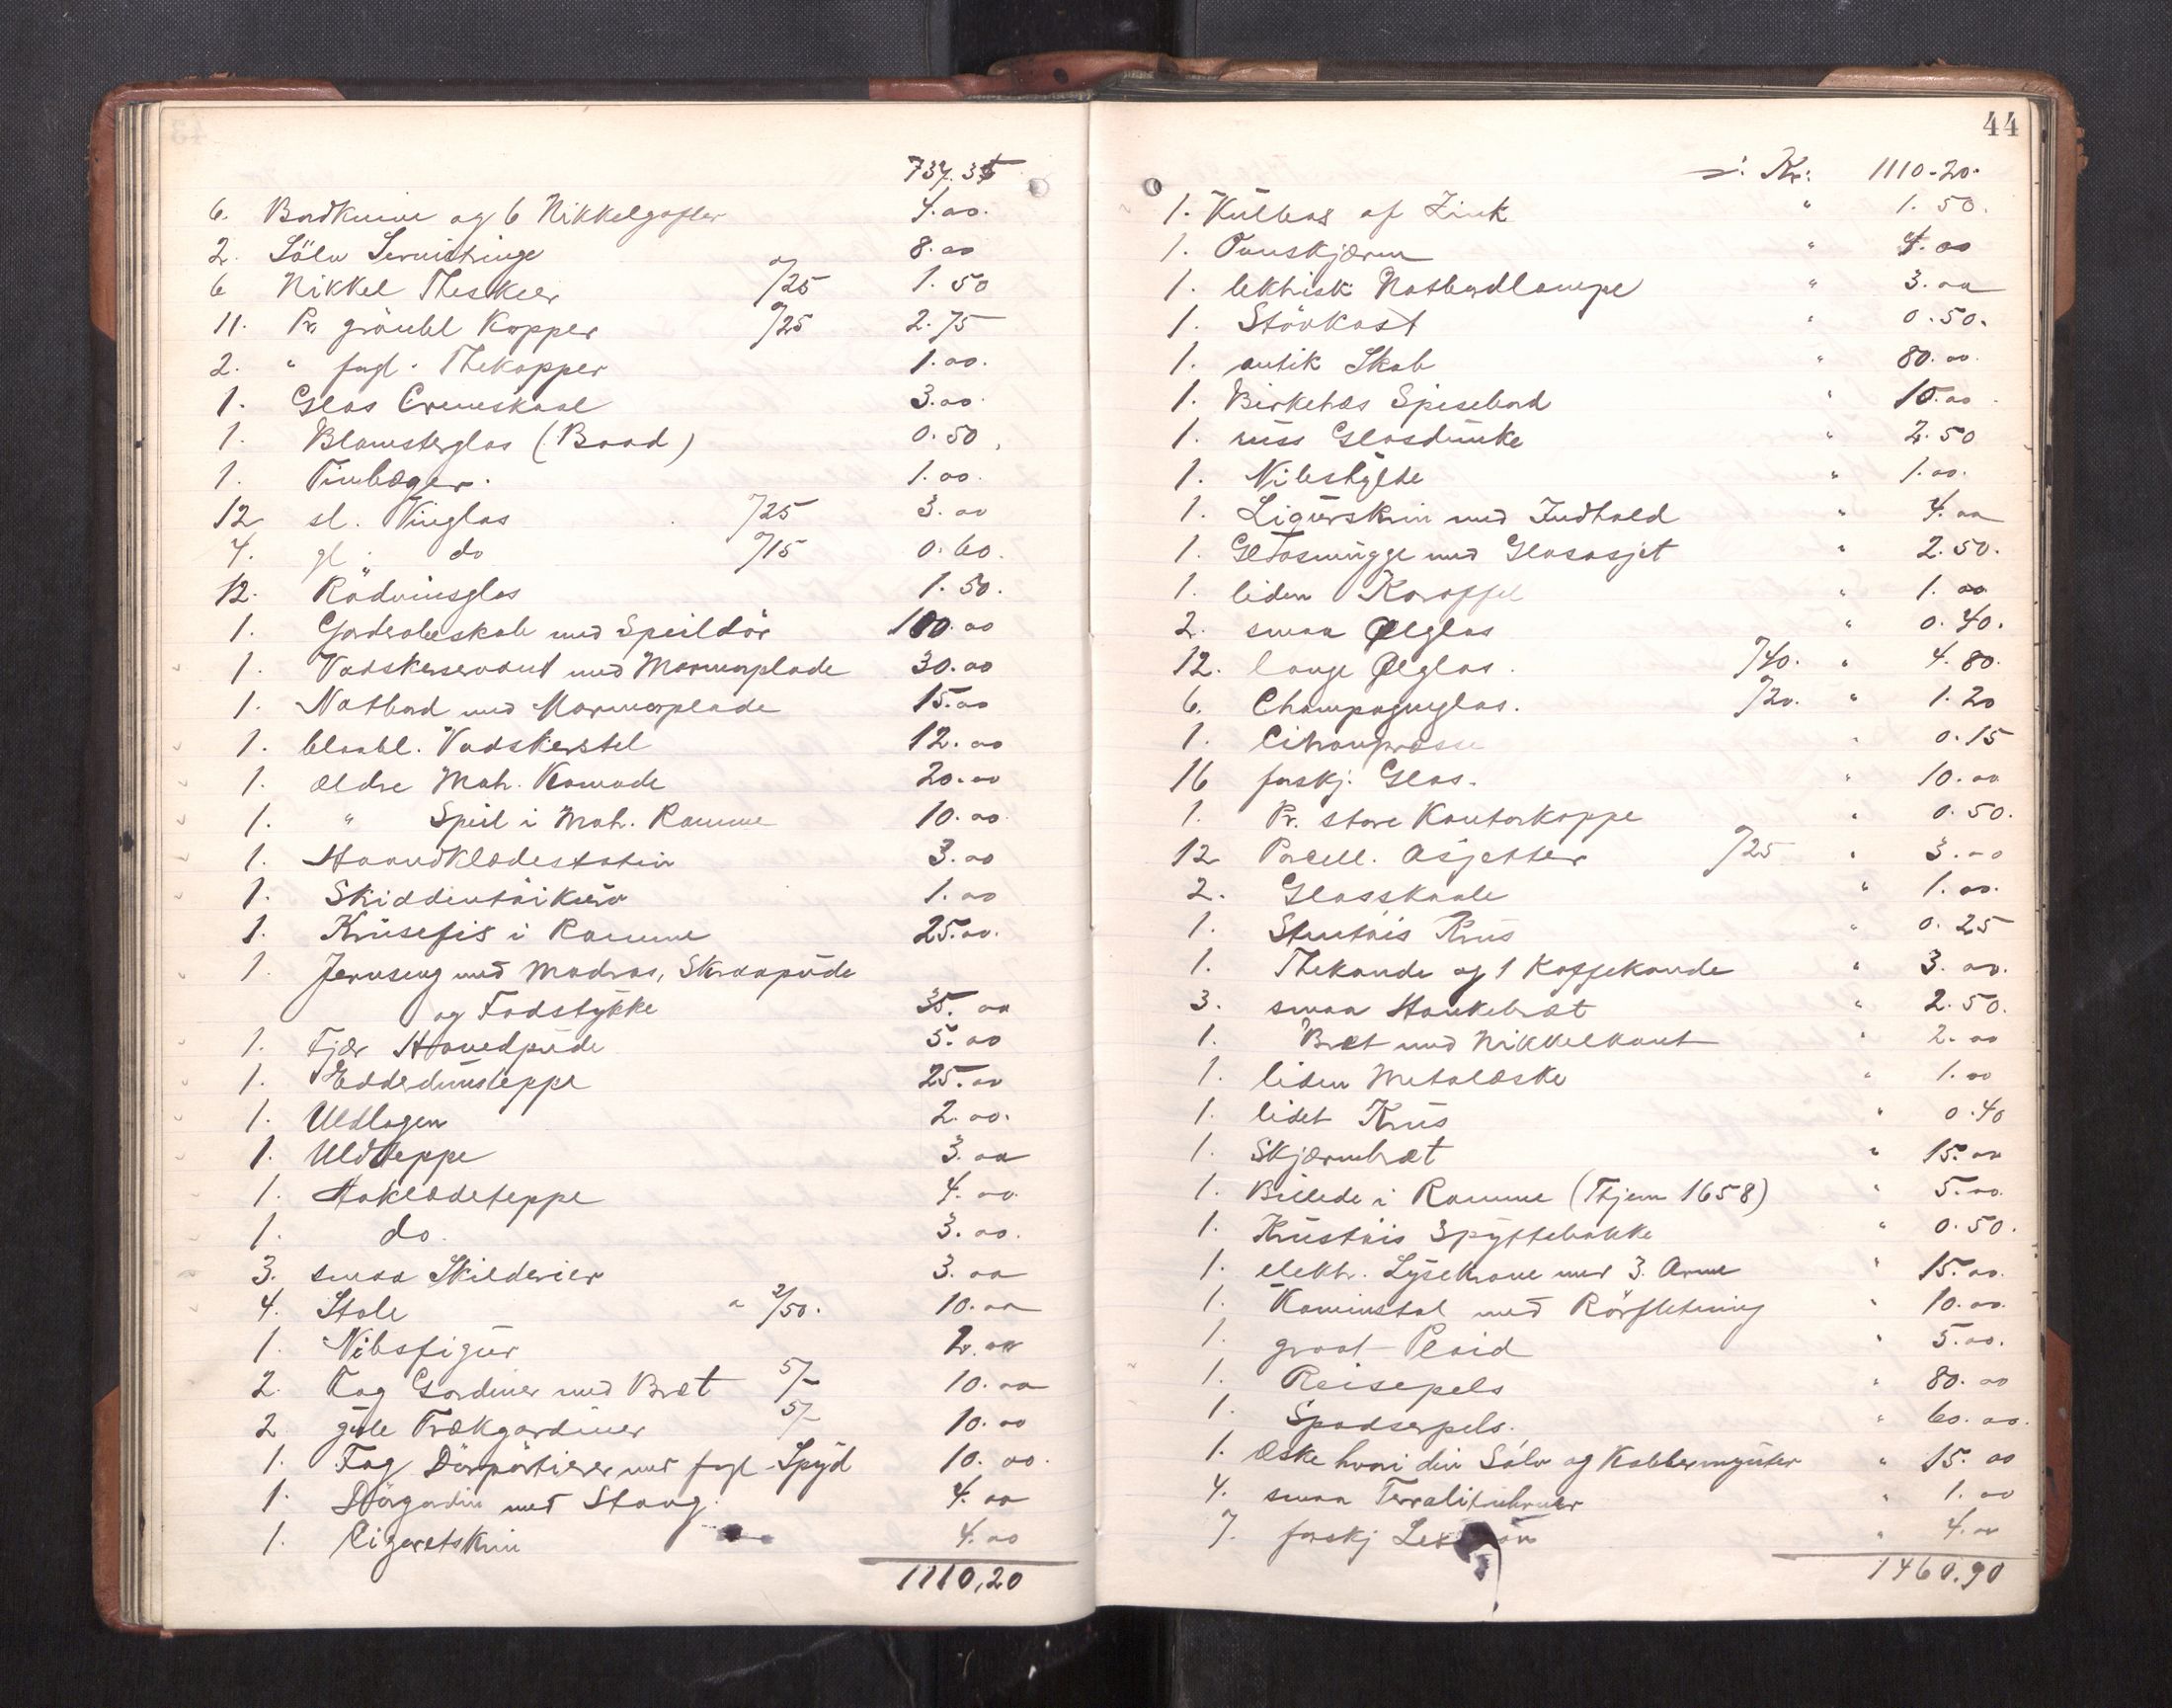 737.35
6. Bordknive og 6 Nikkelgafler 4.00.
2. Sölv Servietringe 8.00
6 Nikkel Theskeer a/25 1.50
11. Pr. grönbl Kopper a/25 2.75
2. " fugl. Thekopper 1.00.
1. Glas Cremeskaal 3.00.
1. Blomsterglas (Baad) 0.50.
1. Tinbæger. 1.00.
12 sl. Vinglas a/25 3.00
4. gl " do a/15 0.60.
12. Rödvinsglas 1.50.
1. Garderobeskab med Speildör 100.00
1. Vadskerservant med Marmorplade 30.00
1. Natbord med Marmorplade 15.00
1. blaabl. Vadskerstel 12.00
1. ældre Mah. Komode 20.00
1. " Speil i Mah. Ramme 10.00
1. Haandklædestativ 3.00
1. Skiddentöikurv 1.00
1. Krusefix i Ramme 25.00.
1. Jernseng med Madras, Skraapude
og Fodstykke 35.00
1. Fjær Hovedpude 5.00
1. Edderdunsteppe 25.00
1. Uldlagen 2.00.
1. Uldteppe 3.00
1. Hakledeteppe 4.00.
1. do. 3.00.
3. smaa Skilderier 3.00
4. Stole a 2/50. 10.00
1. Nibsfigur 2.00
2. Fag Gardiner med Bræt 5/- 10.00
2 gule Trækgardiner 5/- 10.00
1. Fag Dörportierer med fugl Spyd 10.00.
1. Dörgardin med Stang. 4.00
1. Cigaretskrin 4.00
1110,20
44
Kr: 1110.20.
1. Kulbox af Zink " 1.50.
1. Ovnskjærm " 4.00
1. lektrisk Natbordlampe " 3.00
1. Stövkost " 0.50.
1. antik Skab " 80.00.
1. Birketræs Spisebord " 10.00.
1. russ Glasdunke " 2.50
1. Nibshylde " 1.00.
1. Liqurskrin med Indhold " 4.00
1. Glasmugge med Glasasjet " 2.50.
1. liden Karaffel " 1.00
2. smaa Ølglas " 0.40.
12. lange Ølglas. a/40. " 4.80.
6. Champagneglas. a/20. " 1.20
1. Citronpresse " 0.15
16 forskj. Glas. " 10.00
1. Pr. store Kontorkoppe " 0.50.
12 Porcell. Asjetter a/25 " 3.00
2. Glasskaale " 1.00.
1. Stentöis Krus " 0.25
1. Thekande og 1 Kaffekande " 3.00.
3. smaa Hankebræt " 2.50.
1. Bræt med Nikkelkant " 2.00
1. liden Metalæske " 1.00
1. lidet Krus " 0.40
1. Skjærmbræt " 15.00
1. Billede i Ramme (Thjem 1658) " 5.00.
1. Krustöis Spyttebakke " 0.50.
1. elektr. Lysekrone med 3. Arme " 15.00.
1. Kaminstol med Rörfletning " 10.00.
1. graat Plaid " 5.00.
1. Reisepels " 80.00
1. Spadserpels. " 60.00.
1. Æske hvori div Sölv og Kobbermynter " 15.00
4. smaa " 1.00
7. forskj " 4.00
1460.90